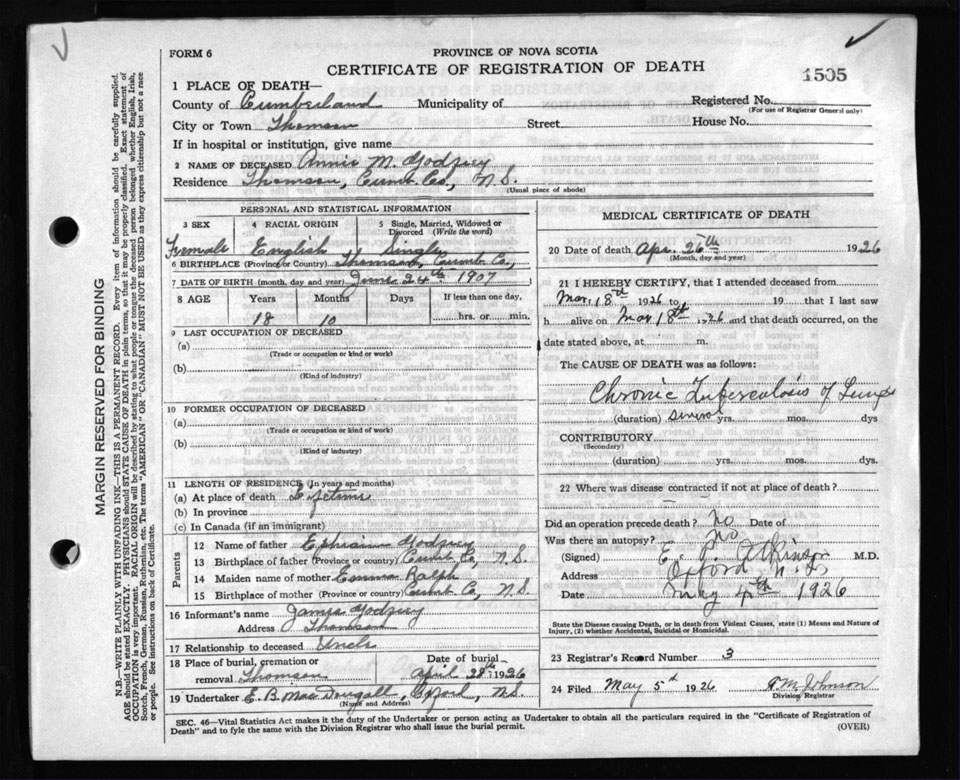 FORM 6
PROVINCE OF NOVA SCOTIA
CERTIFICATE OF REGISTRATION OF DEATH
1505
1 PLACE OF DEATH—
County of Cumberland Municipality of Registered No.
(For use of Registrar General only)
City or Town Thomson Street House No.
If in hospital or institution, give name
2 NAME OF DECEASED Annie M. Godfrey
Residence Thomson, Cumb. Co., N.S.
(Usual place of abode)
MARGIN RESERVED FOR BINDING
N.B.—WRITE PLAINLY WITH UNFADING INK—THIS IS A PERMANENT RECORD. Every item of information should be carefully supplied.
AGE should be stated EXACTLY. PHYSICIANS should STATE CAUSE OF DEATH in plain terms, so that it may be properly classified. Exact statement of
OCCUPATION is very important. RACIAL ORIGIN will be described by stating to what people or tongue the deceased person belonged whether English, Irish,
Scotch, French, German, Russian, Ruthenian, etc. The terms "AMERICAN" or "CANADIAN" MUST NOT BE USED as they express citizenship but not a race
or people. See instructions on back of Certificate.
PERSONAL AND STATISTICAL INFORMATION
3 SEX 4 RACIAL ORIGIN 5 Single, Married, Widowed or
Divorced (Write the word)
Female English Single
6 BIRTHPLACE (Province or Country) Thomson, Cumb. Co.,
7 DATE OF BIRTH (month, day, and year) June 24th 1907
8 AGE Years Months Days If less than one day,
18 10 hrs. or min.
9 LAST OCCUPATION OF DECEASED
(a)
(Trade or occupation or kind or work)
(b)
(Kind of industry)
10 FORMER OCCUPATION OF DECEASED
(a)
(Trade or occupation or kind of work)
(b)
(Kind of industry)
11 LENGTH OF RESIDENCE (In years and months)
(a) At place of death Lifetime
(b) In province
(c) In Canada (if an immigrant)
Parents
12 Name of father Ephriam Godfrey
13 Birthplace of father (Province or country) Cumb. Co., N.S.
14 Maiden name of mother Emma Ralph
15 Birthplace of mother (Province or country) Cumb. Co., N.S.
16 Informant's name James Godfrey
Address Thomson
17 Relationship to deceased Uncle
18 Place of burial, cremation or Date of burial
removal Thomson April 28th 1926
19 Undertaker E. B. MacDougall, Oxford, N.S.
(Name and Address)
MEDICAL CERTIFICATE OF DEATH
20 Date of death Apr. 26th 1926
(Month, day and year)
21 I HEREBY CERTIFY, that I attended deceased from
Mar 18 1926 to 19 that I last saw
h alive on Mar 18th 1926 and that death occurred, on the
date stated above, at m.
The CAUSE OF DEATH was as follows:
Chronic Tuberculosis of Lungs
(duration) several yrs. mos. dys
CONTRIBUTORY
(Secondary)
(duration) yrs. mos. dys.
22 Where was disease contracted if not at place of death?
Did an operation precede death? no Date of
Was there an autopsy? no
(Signed) Atkinson M.D.
Address Oxford N.S.
Date May 4th 1926
State the Disease causing Death, or in death from Violent Causes, state (1) Means and Nature of
Injury, (2) whether Accidental, Suicidal or Homicidal.
23 Registrar's Record Number 3
24 Filed May 5th 1926 Johnson
Division Registrar
SEC. 46—Vital Statistics Act makes it the duty of the Undertaker or person acting as Undertaker to obtain all the particulars required in the "Certificate of Registration of
Death" and to fyle the same with the Division Registrar who shall issue the burial permit.
(OVER)